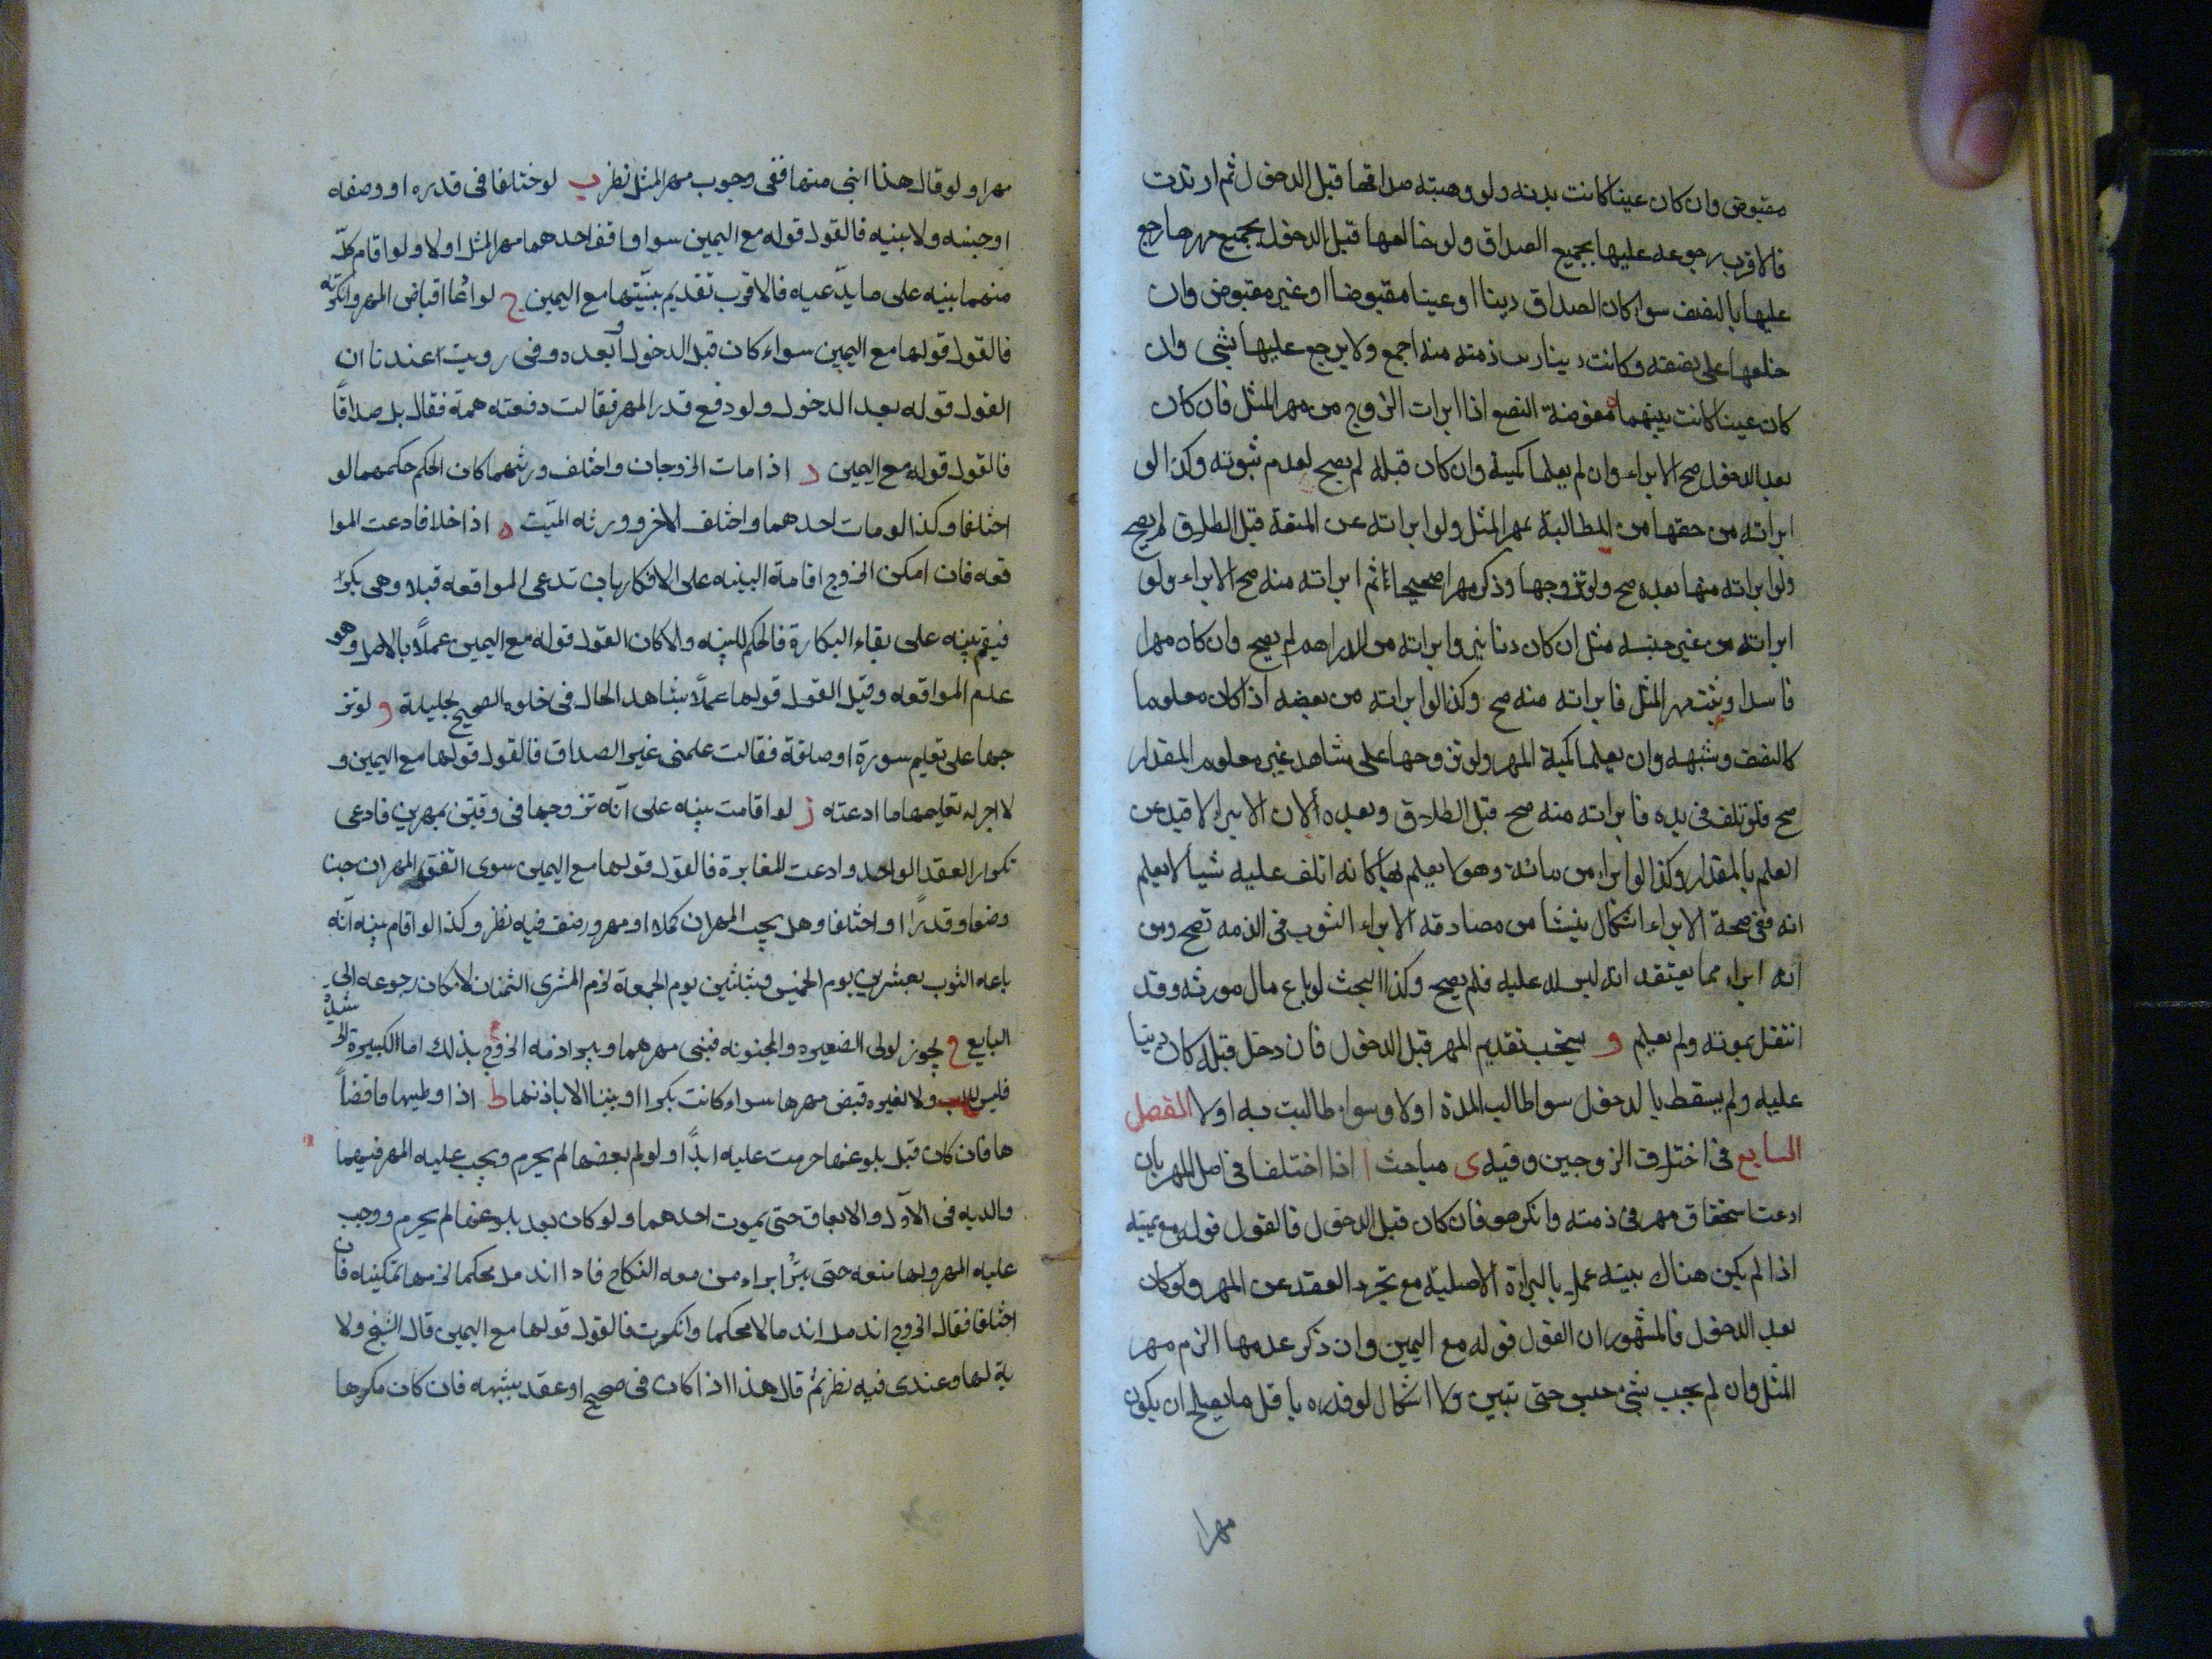 مقبوض وان كان عينا كانت بدنه ولو وهبته صداقها قبل الدخول ثم ارتدت
فالاقرب رجوعه عليها بجميع الصداق ولو خالعها قبل الدخول بجميع مهرها رجع
عليها بالنصف سوا كان الصداق دينا او عينا مقبوضا او غير مقبوض وان
خلعها على نصفه وكانت دينا ذمته منه اجمع ولا يرجع عليها بشي وان
كان عينا كانت بينهما ه مفوضة البضع اذا ابرات الزوج من مهر المثل فان كان
بعد الدخول صح الابراء وان لم يعلما كميته وان كان قبله لم يصح لعدم ثبوته وكذا لو
ابراته من حقها من المطالبة بمهر المثل ولو ابراته عن المتعة قبل الطلاق لم يصح
ولو ابراته منها بعده صح ولو تزوجها وذكر مهرا صحيحا ثم ابراته منه صح الابراء ولو
ابراته من غير جنسه مثل ان كان دنانير وابراته من الدراهم لم يصح وان كان مهرا
فاسدا وثبت مهر المثل فابراته منه صح وكذا لو ابراته من بعضه اذا كان معلوما
كالنصف وشبهه وان يعلما كمية المهر ولو تزوجها على مشاهد غير معلوم المقدار
صح فلو تلف في يده فابراته منه صح قبل الطلاق وبعده لان الابراء لا قيد عن
العلم بالمقدار وكذا لو ابراء من مائة وهو لا يعلم بها كانه اتلف عليه شيا لا يعلم
انه ففي صحة الابراء اشكال ينشا من مصادقة الابراء الثوب في الذمه تصح ومن
انه ابراء مما يعتقد انه ليس له عليه فلم يصح وكذا البحث لو باع مال مورثه وقد
انتقل بموته ولم يعلم و يستحب تقديم المهر قبل الدخول فان دخل قبله كان دينا
عليه ولم يسقط بالدخول سوا طالت المدة اولا وسواء طالبت به اولا الفصل
السابع في اختلاف الزوجين وفيه ى مباحث ا اذا اختلفا في اصل المهر بان
ادعت استحقاق مهر في ذمته وانكر هو فان كان قبل الدخول فالقول قوله مع يمينه
اذا لم يكن هناك بينه عملا بالبراة الاصلية مع تجرد العقد عن المهر ولو كان
بعد الدخول فالمشهور ان القول قوله مع اليمين وان ذكر عدمها الزم مهر
المثل وان لم يجب بشي حبس حتى تبين ولا اشكال لو قدره باقل ما يصلح ان يكون
مهرا
مهرا ولو قال هذا ابني منها ففي وجوب مهر المثل نظر ب لو ختلفا في قدره او وصفه
او جنسه ولا بينه فالقول قوله مع اليمين سوا وافق احدهما مهر المثل اولا ولو اقام كلّ
منهما بينه على ما يدّعيه فالاقرب تقديم بينّتها مع اليمين ج لو ادّعا اقباض المهر وانكرته
فالقول قولها مع اليمين سواء كان قبل الدخول او بعده وفي رويت اعندنا ان
القول قوله بعد الدخول ولو دفع قدر المهر فقالت دفعته هبة فقال بل صداقاً
فالقول قوله مع اليمين د اذا مات الزوجان واختلف ورثتهما كان الحكم حكمهما لو
اختلفا وكذا لو مات احدهما واختلف الاخر وورثه الميّت ه اذا خلا فادعت الموا
قعه فان امكن الزوج اقامة البينه على الانكار بان تدعي المواقعه قبلا وهي بكرا
فيقيم بينه على بقاء البكارة فالحكم للبينه والا كان القول قوله مع اليمين عملاً بالاصل وهو
عدم المواقعه وقيل القول قولها عملاً بشاهد الحال في خلوه الصحيح بحليلة و لو تز
وجها على تعليم سورة او صنعة فقالت علمني غير الصداق فالقول قولها مع اليمين و
لا اجر له تعليمها ما ادعته ز لو اقامت بينه على انّه تزوجها في وقتين بمهرين فادعى
تكرار العقد الواحد وادعت المغايرة فالقول قولها مع اليمين سوى اتفق المهران جنا
وصفا وقدرًا او اختلفا وهل يجب المهران كملا او مهر ونصف فيه نظر وكذا لو اقام بينه انّه
باعه الثوب بعشرين يوم الخميس وبثلثين يوم الجمعة لزم المشتري الثمنان لامكان رجوعه الى
البايع ح يجوز لولي الصغيره والمجنونه قبض مهرهما ويبرا ذمه الزوج بذلك اما الكبيرة الرشيده
فليس للاب ولا لغيره قبض مهرها سواء كانت بكرا او ثيبا الا باذنها ط اذا وطيها فافضا
ها فان كان قبل بلوغها حرمت عليه ابدًا ولو لم يفضها لم يحرم ويجب عليه المهر فيهما
والديه في الاوّل والانفاق حتى يموت احدهما ولو كان بعد بلوغها لم يحرم ووجب
عليه المهر ولها منعه حتى تبرا براء من معه النكاح فاذا اندمل محكما لزمها تمكينه فان
اختلفا فقال الزوج اندمل اندمالا محكما وانكرت فالقول قولها مع اليمين قال الشيخ ولا
ية لها وعندي فيه نظر ثم قال هذا اذا كان في صحيح او عقد بشبهه فان كان مكرها